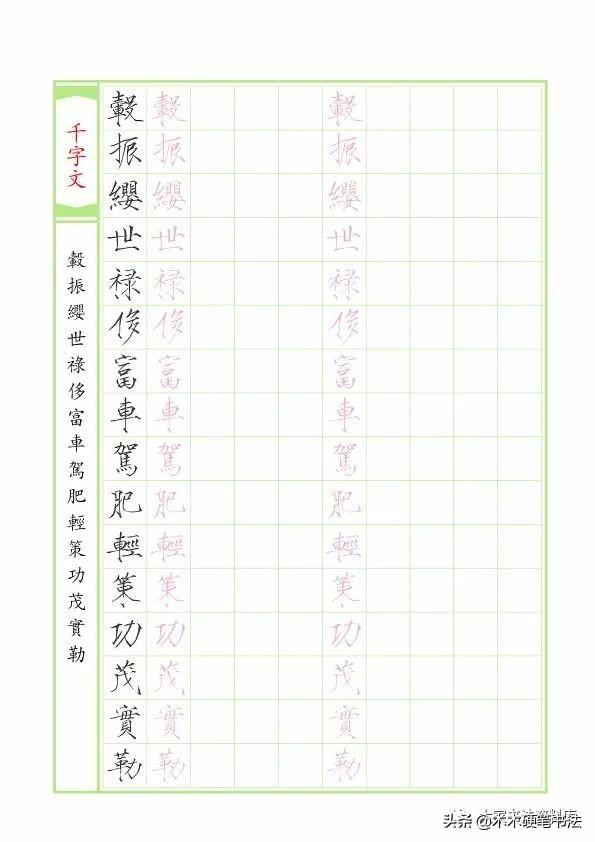 千字文
轂振纓世祿侈富車駕肥輕策功茂實勒
轂振纓世禄侈富車駕肥輕策功茂實勒
轂振纓世禄侈富車駕肥輕策功茂實勒
轂振纓世禄侈富車駕肥輕策功茂實勒
头条 @木木硬笔书法